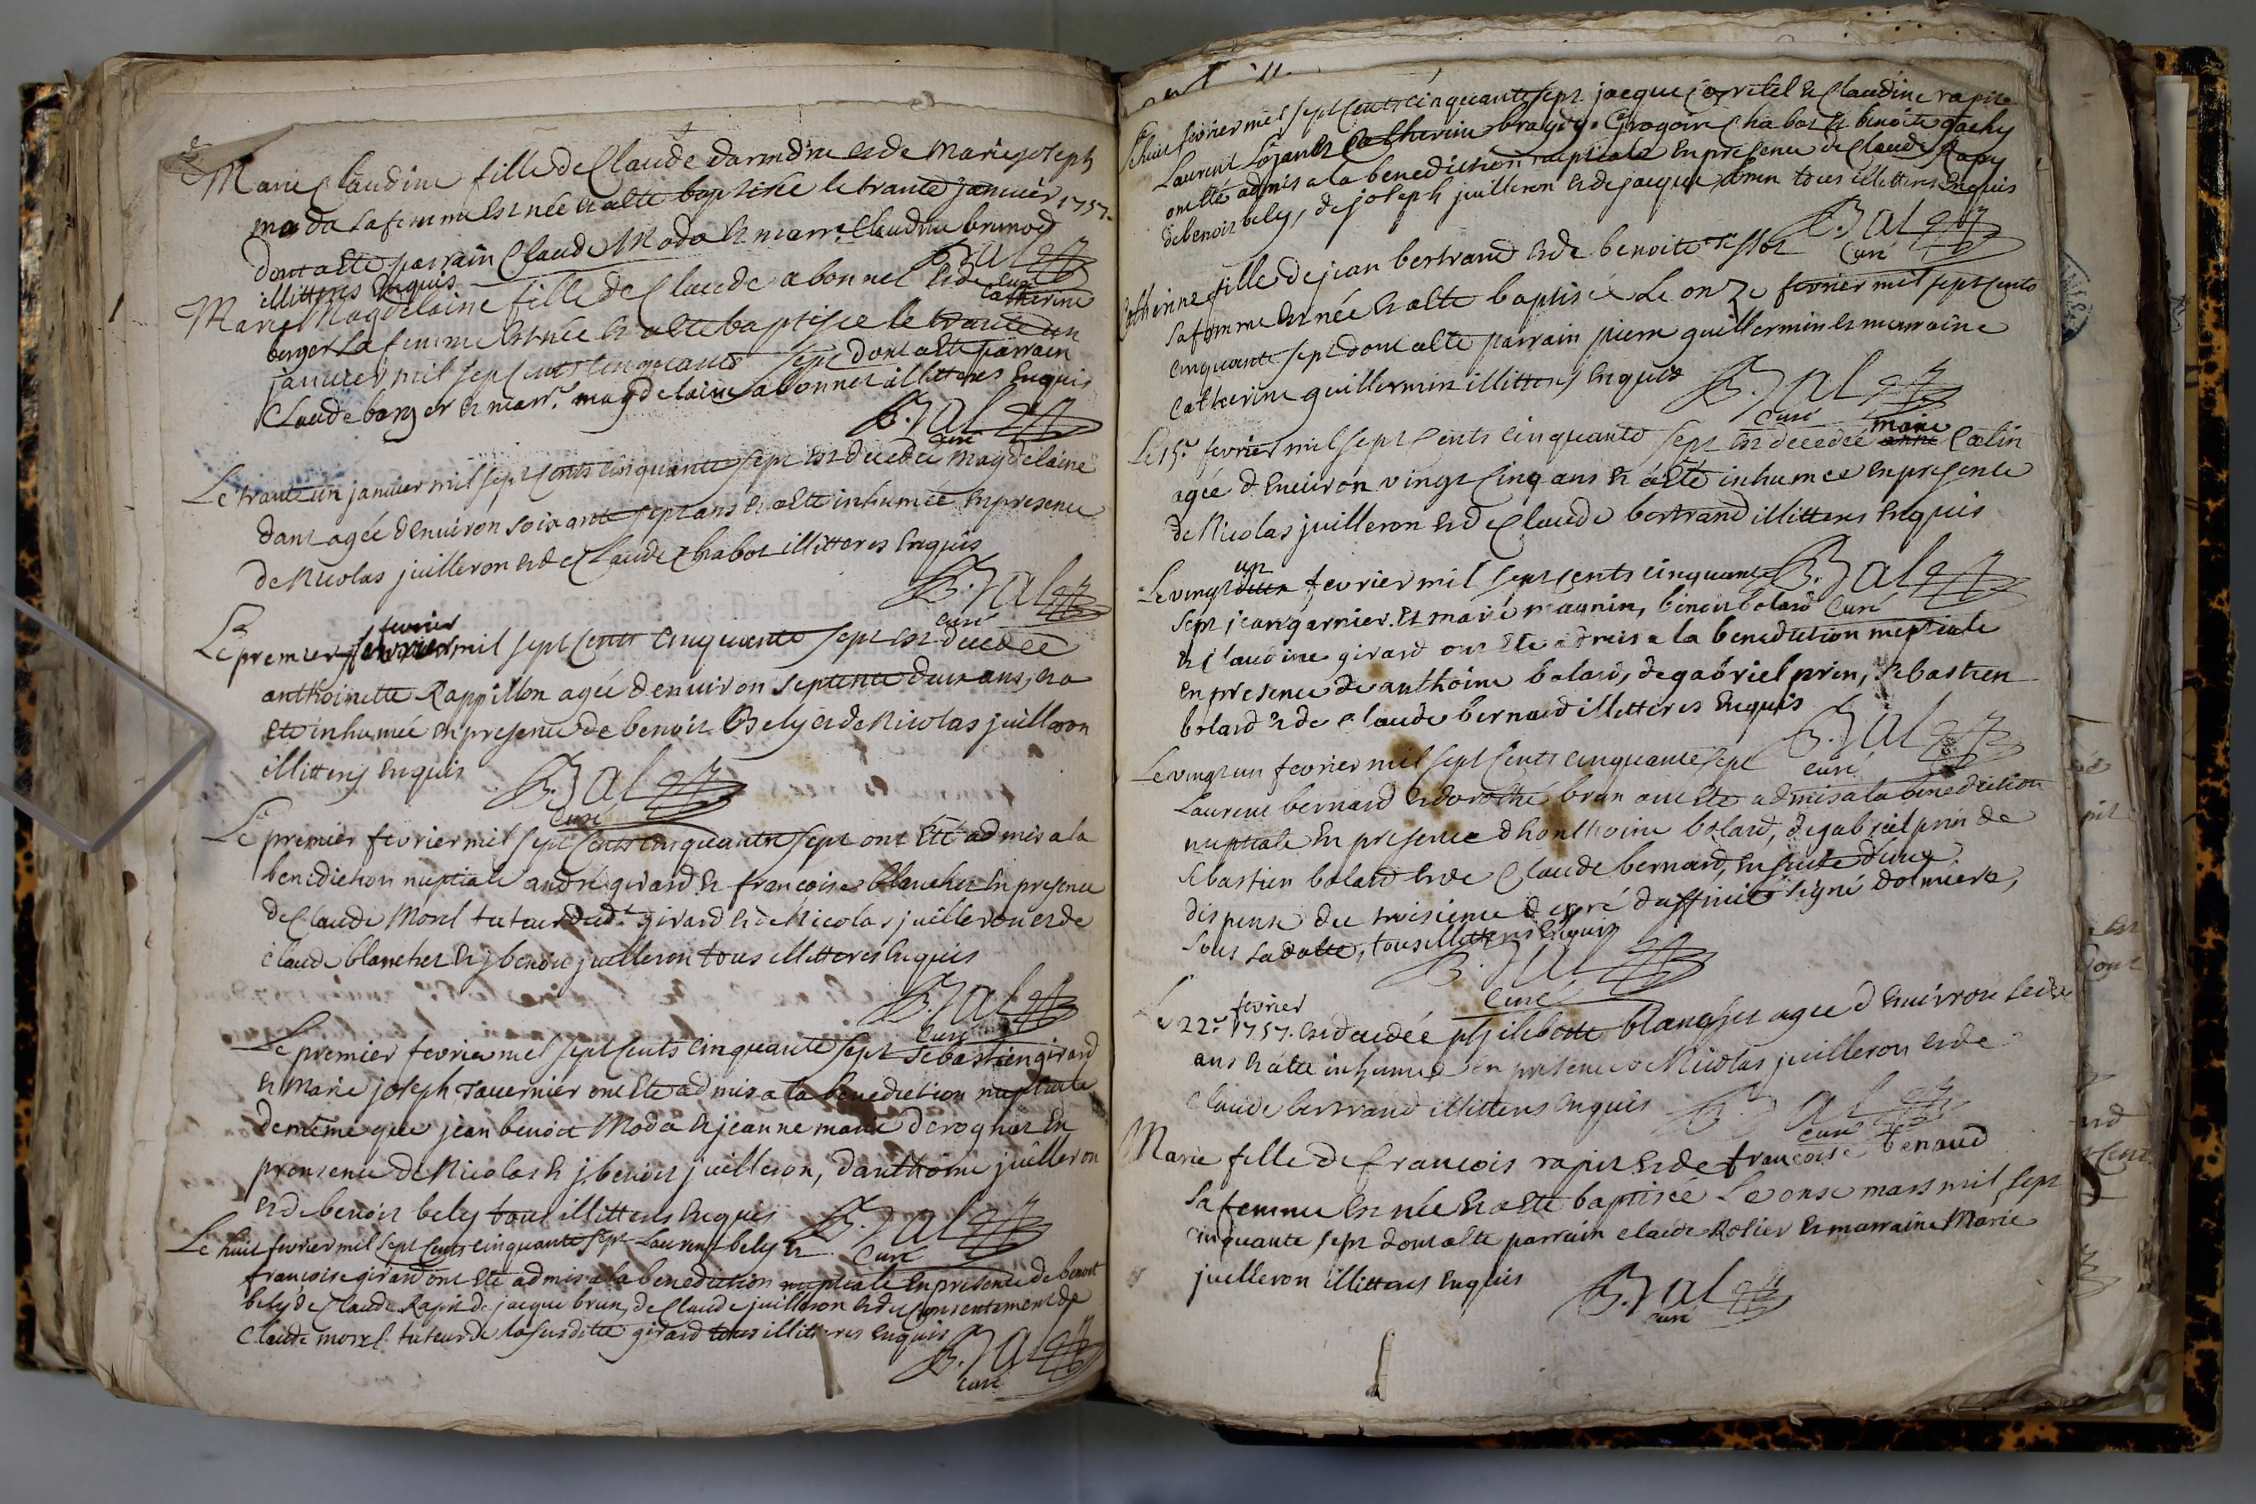 Marie Claudine fille de Claude darmdrie et de Marie joseph
moda sa femme est née et a été baptisée le trante janvier 1757.
dont a été parrain Claude Moda et marr.e Claudine brunod
illitteres Enquis B. Jal
curé
Marie Magdelaine fille de Claude abonnel et de Catherine
berger sa femme est née et a été baptisée le trante un
janvier mil sept cents cinquante sept dont a été parrain
Claude berger et marr.e magdelaine abonnel illitteres Enquis
B. Jal
curé
Le trante un janvier mil sept cents cinquante sept est decedée magdelaine
dant agée d'Environ soixante sept ans et a été inhumée En presence
de Nicolas juilleron et de Claude Chabot illitteres Enquis
B. Jal
curé
fevrier
Le premier mil sept cents cinquante sept est decedée
anthoinette Rappillon agée d'environ septente deux ans, et a
eté inhumée en presence de benoit Bely et de Nicolas juilleron
illitteres Enquis B. Jal
curé
Le premier fevrier mil sept cents cinquante sept ont été admis a la
benediction nuptiale andré girard et francoise blanchet En presence
de Claude Morel tuteur dud.t girard et de Nicolas juilleron et de
claude blanchet et j benoit juilleron tous illitteres Enquis
B. Jal
curé
Le premier fevrier mil sept cents cinquante sept sebastien girard
et Marie joseph Tavernier ont été admis a la benediction nuptiale
de même que jean benoit Moda et jeanne marie derognat En
pronsence de Nicolas et j. benoit juilleron, d'anthoine juilleron
et de benoit bely tous illitteres Enquis B. Jal
curé
Le huit fevrier mil sept cents cinquante sept Laurent bely et
francoise girard ont été admis a la benediction nuptiale En presence de benoit
bely de Claude Rapit de jacque brun, de Claude juilleron et du consentement de
Claude morel tuteur de la susditte girard tous illitteres Enquis
B. Jal
curé
Le huit fevrier mil sept cents cinquante sept jacque et Claudine rapit
Laurent et Catherine Gregoire Chabot et benoite gachy
ont été admis a la benediction nuptiale En presence de Claude Rapy
de benoit bely, de joseph juilleron et de jacque tous illitteres Enquis
B. Jal
curé
Catherinne fille de jean bertrand et de benoite Tissot
sa femme est née et a été baptisée Le onze fevrier mil sept cents
cinquante sept dont a été parrain pierre guillermin et marraine
Catherine guillermin illitteres Enquis B. Jal
curé
marie
Le 15.e fevrier mil sept cents cinquante sept est decedée anne Colin
agée d'Environ vingt cinq ans et a été inhumée en presence
de Nicolas juilleron et de Claude bertrand illitteres Enquis
B. Jal
curé
un
Le vingt fevrier mil sept cents cinquante
sept jean garnier et marie magnin, benoit bolard
et claudine girard ont été admis a la benediction nuptiale
en presence de anthoine bolard, de gabriel prin, sebastien
bolard et de claude bernard illitteres Enquis
B. Jal
curé
Le vingt un fevrier mil sept cents cinquante sept
Laurent bernard et dorothé brun ont été admis a la benediction
nuptiale En presence d'honthoine bolard, de gabriel prin de
sebastien bolard et de Claude bernard, En suitte d'une
dispense du troisieme degré d'affinité signé Dolmiere,
sous sa datte, tous illitteres Enquis
B. Jal
curé
fevrier
Le 22.e 1757. est decedée philiberte blanchet agee d'Environ seize
ans et a été inhumée en presence Nicolas juilleron et de
Claude bertrand illitteres Enquis B. Jal
curé
Marie fille de francois rapit et de francoise benaud
sa femme est née et a été baptisée Le onse mars mil sept
cinquante sept dont a été parrain claude Rosier et marraine Marie
juilleron illitteres Enquis B. Jal
curé